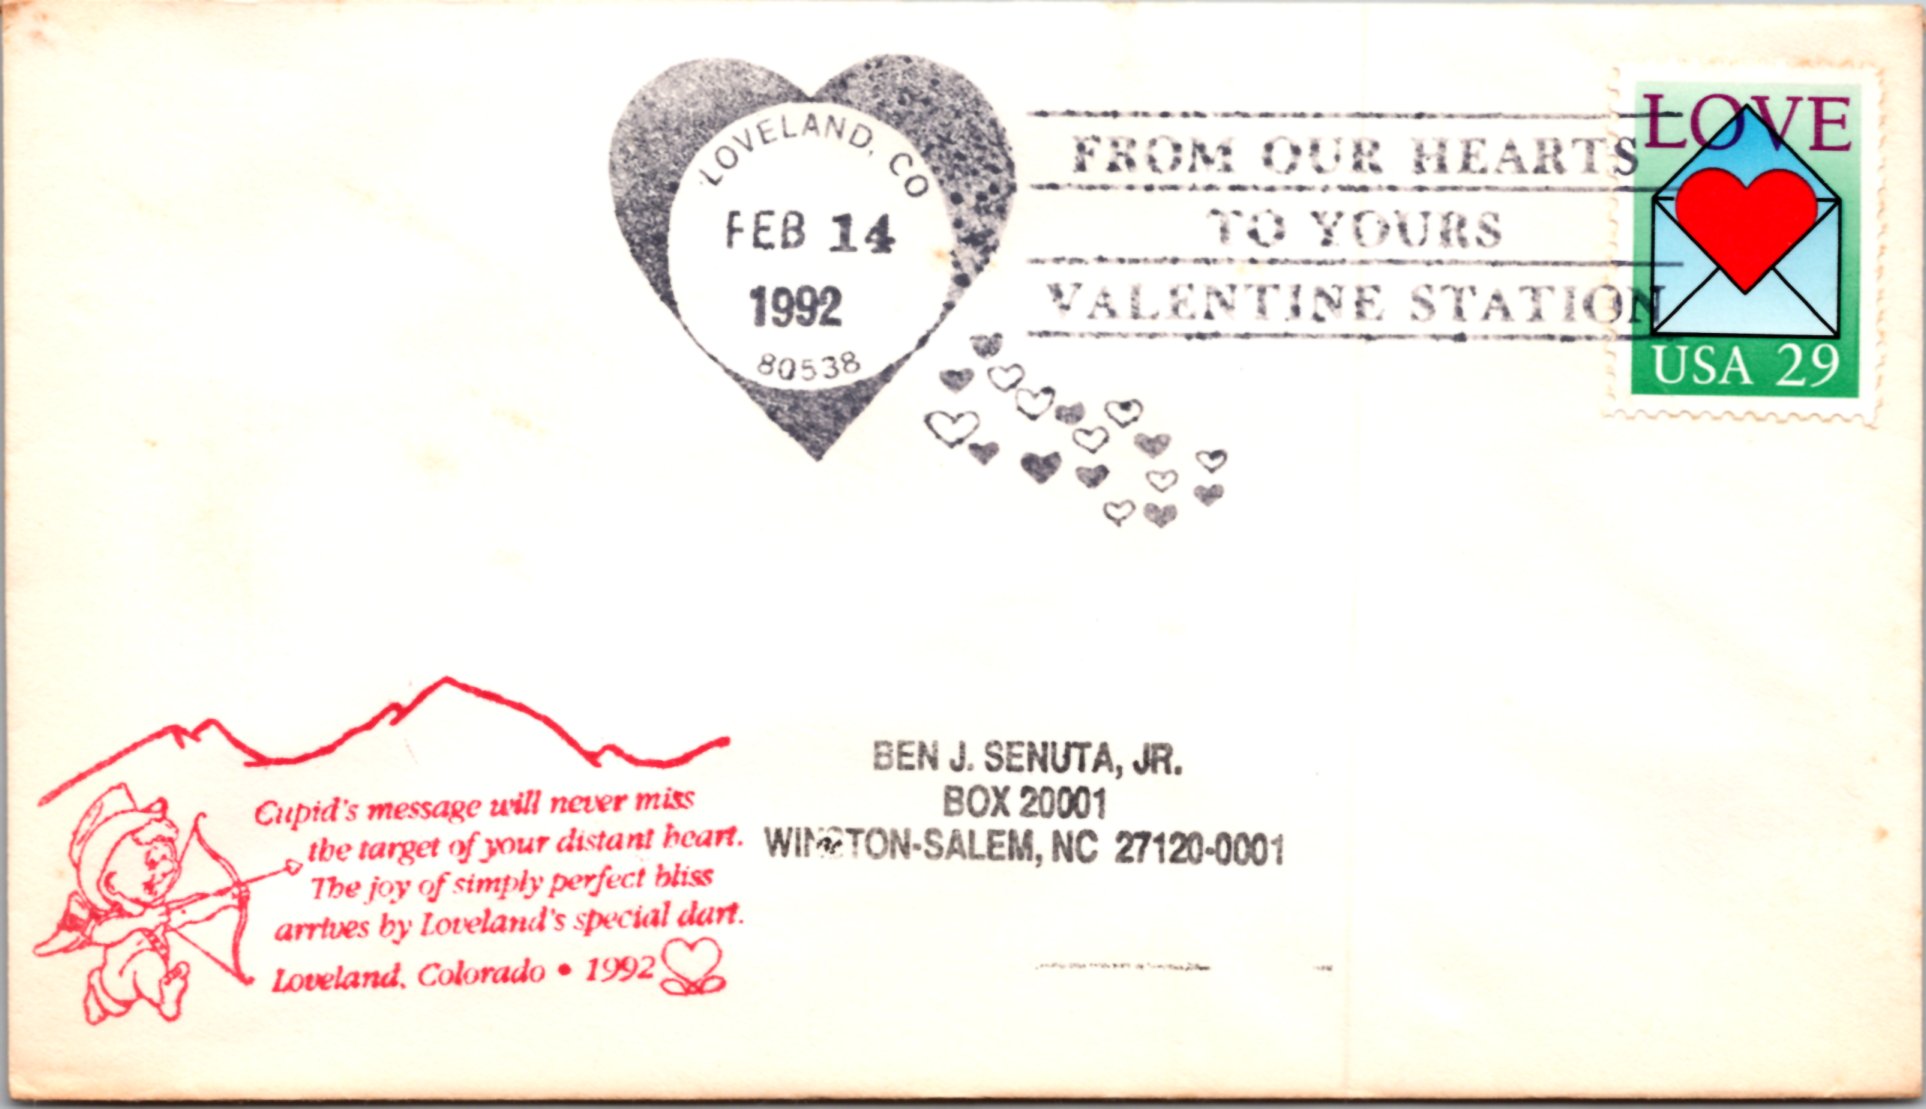 LOVELAND, CO
FEB 14
1992
80538
FROM OUR HEARTS
TO YOURS
VALENTINE STATION
LOVE
USA 29
Cupid's message will never miss
the target of your distant heart.
The joy of simply perfect bliss
arrives by Loveland's special dart.
Loveland, Colorado • 1992
BEN J. SENUTA, JR.
BOX 20001
WINSTON-SALEM, NC 27120-0001